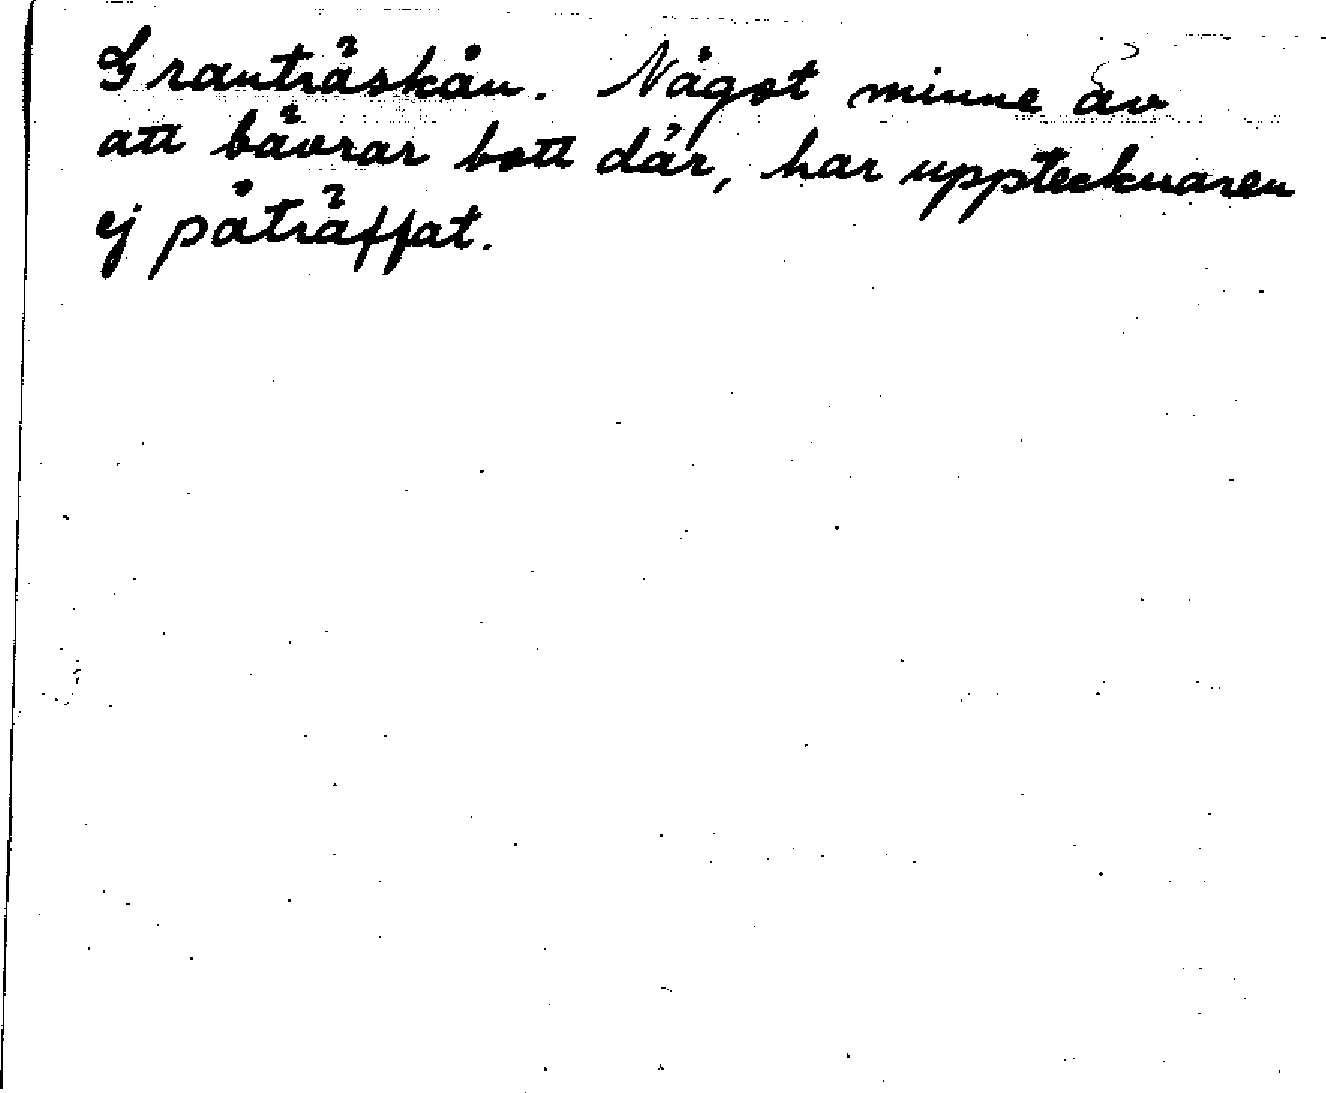 Granträskån. Något minne av
att bävrar bott där, har upptecknaren
ej påträffat.